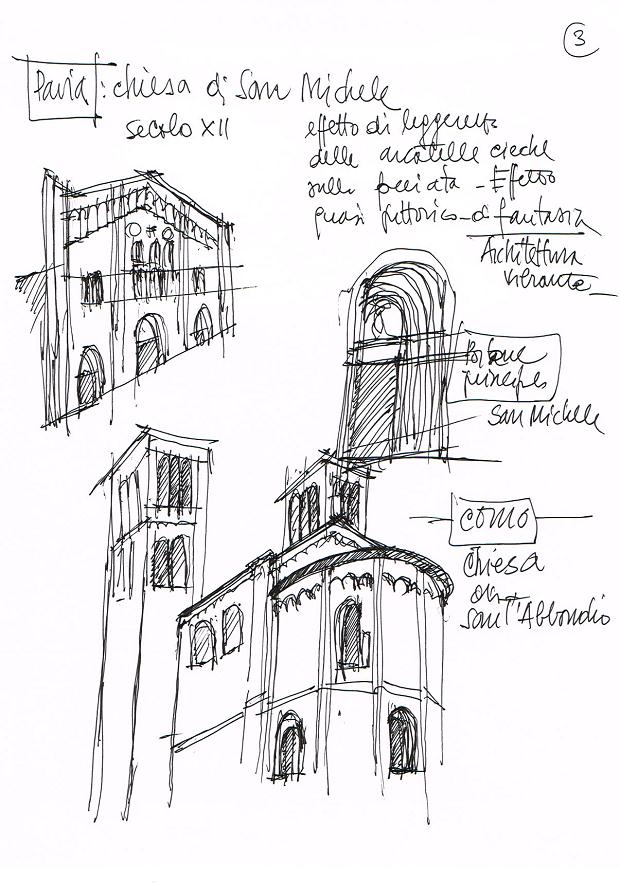 3
Pavia : chiesa di San Michele
secolo XII
effetto di leggerezza
delle arcatelle cieche
sulla facciata - Effetto
quasi pittorico - di fantasia
Architettura
vibrante
Portone
principale
San Michele
COMO
Chiesa
di
Sant'Abbondio